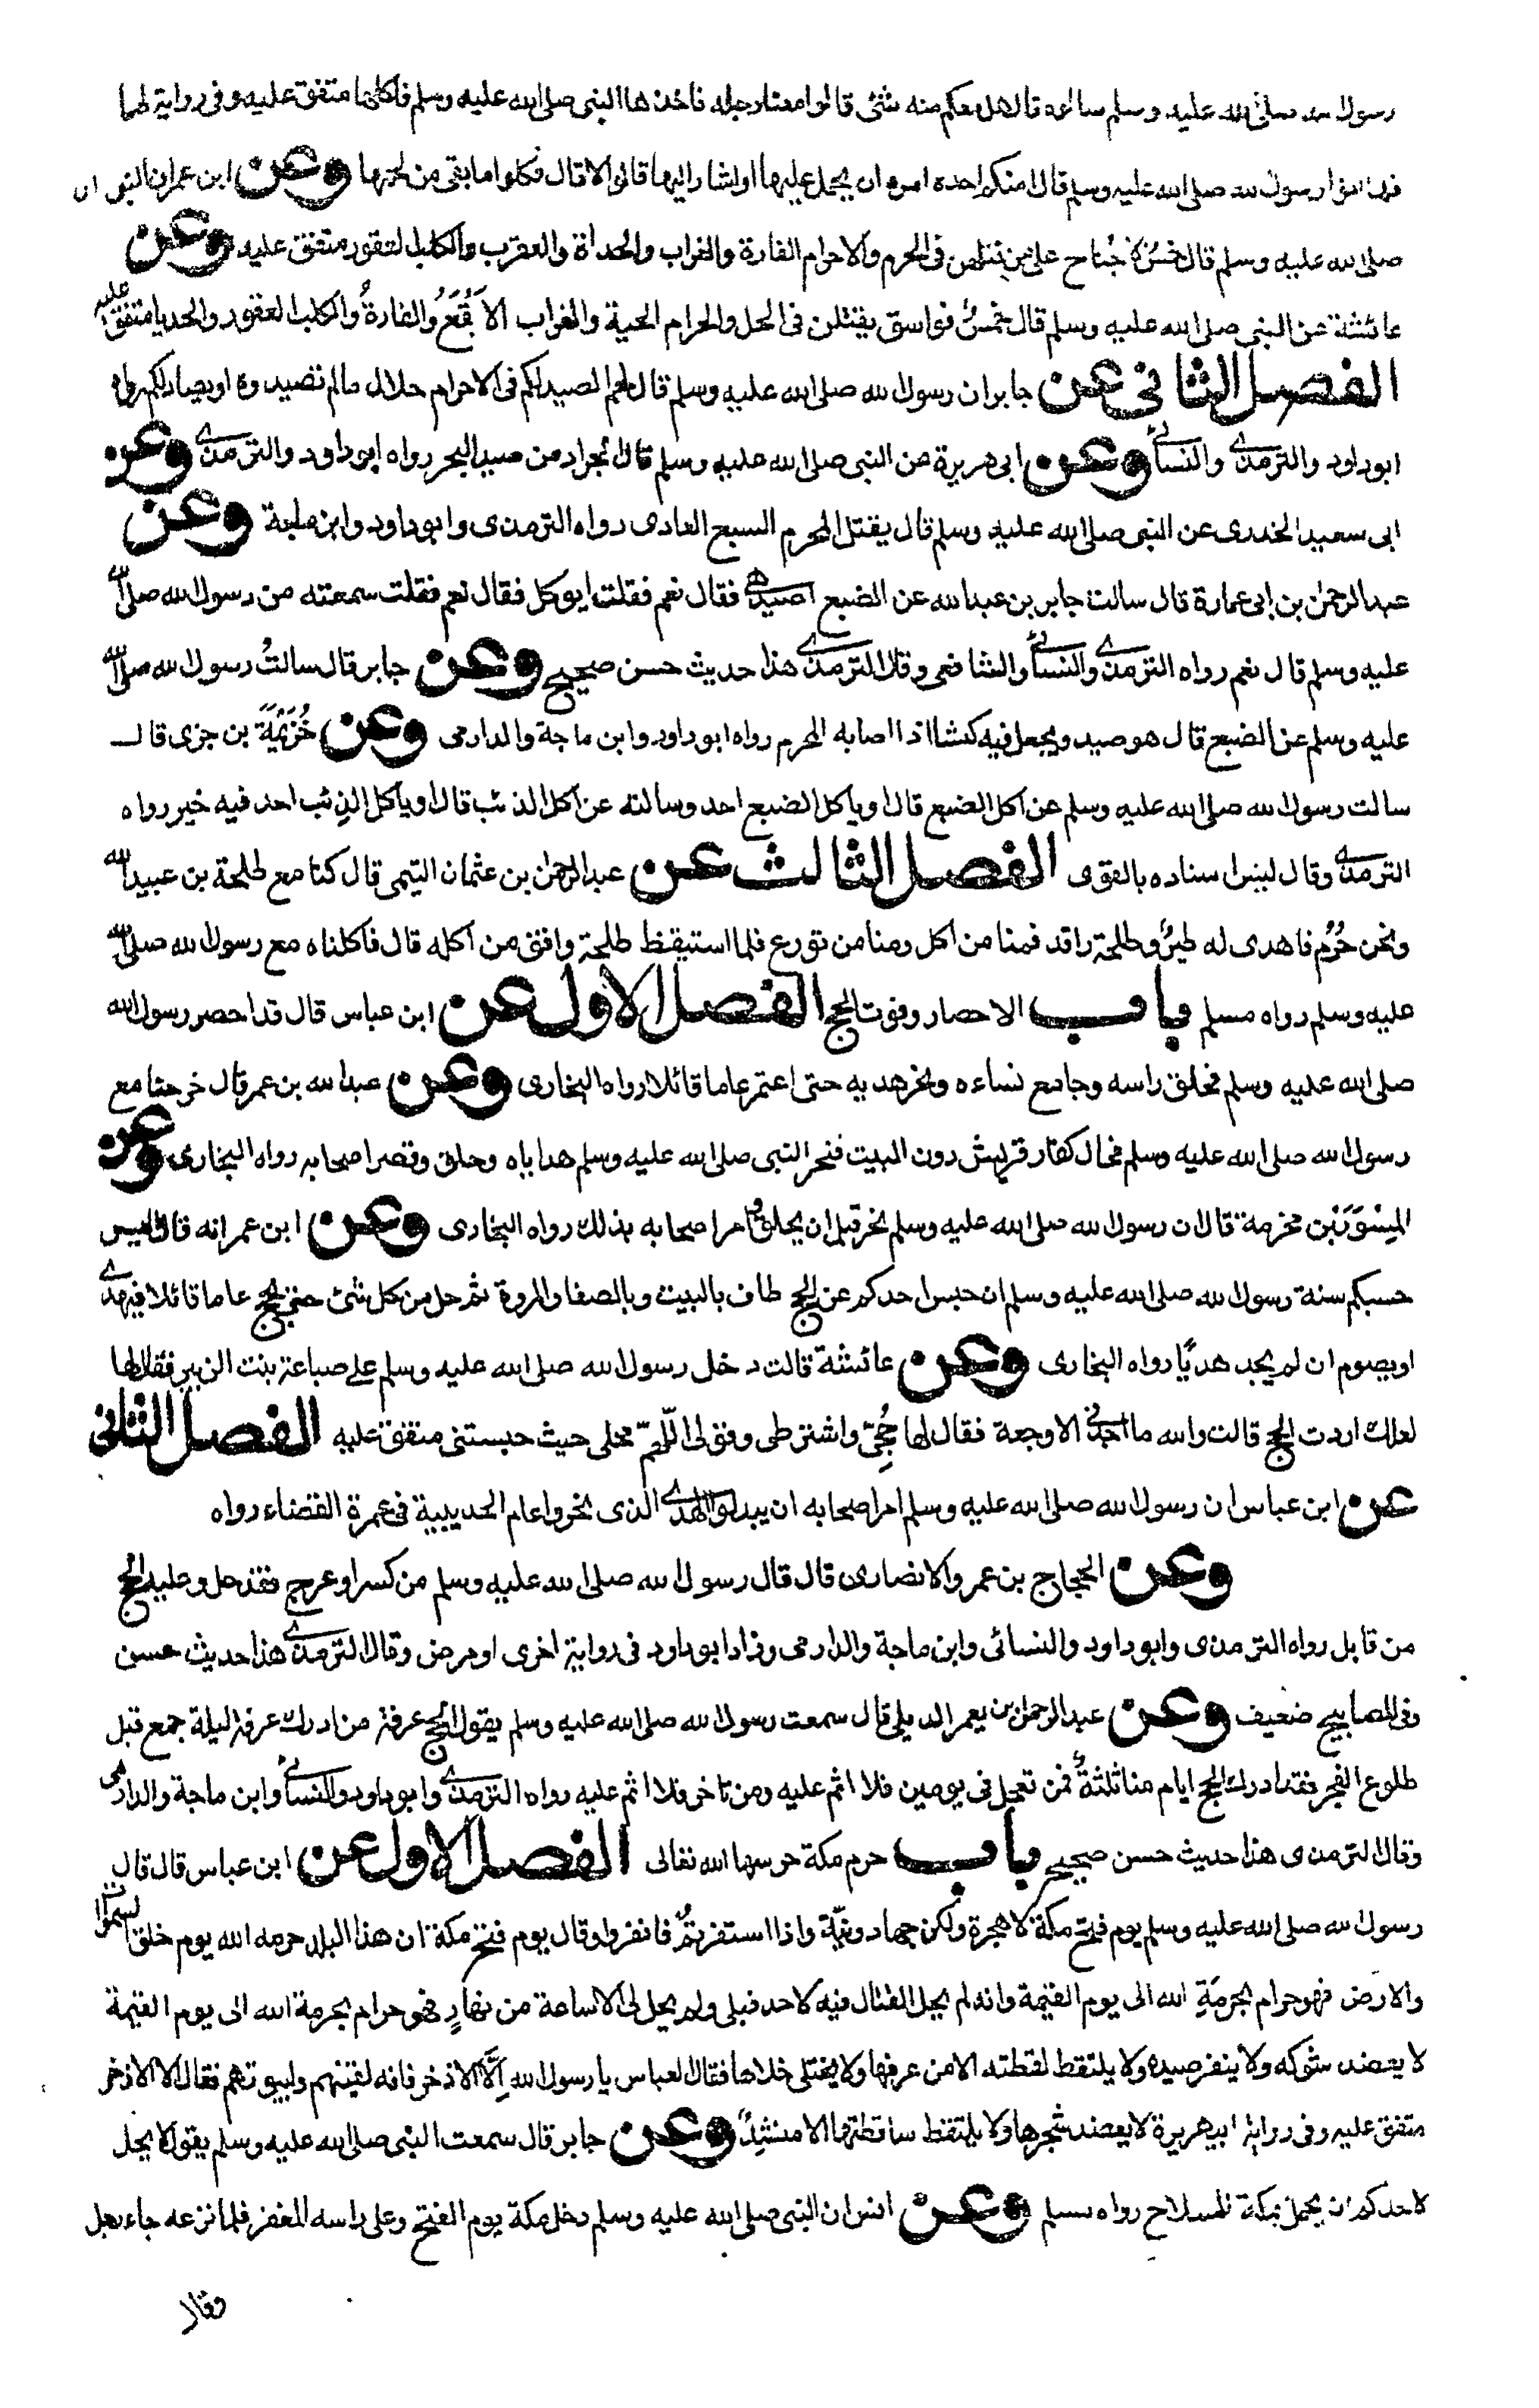 رسول الله صلى الله عليه وسلم سالوه قال هل معكم منه شئ قالوا معنا رجله فاخذها النبى صلى الله عليه وسلم فاكلها متفق عليه وفى رواية لهما
فلما اتوا رسول الله صلى الله عليه وسلم قال امنكم احد امره ان يحمل عليها او اشار اليها قالوا لا قال فكلوا ما بقى من لحمها وعن ابن عمر ان النبى
صلى الله عليه وسلم قال خمس لا جُناح على من قتلهن فى الحرم والاحرام الفارة والغراب والحداة والعقرب والكلب العقور متفق عليه وعن
عائشة عن النبى صلى الله عليه وسلم قال خمسٌ فواسق يقتلن فى الحل والحرام الحية والغراب الاَبْقَعُ والفارةُ والكلب العقور والحديا متفق عليه
الفصل الثانى عن جابر ان رسول الله صلى الله عليه وسلم قال لحم الصيد لكم فى الاحرام حلال مالم تصيدوه او يصاد لكم رواه
ابوداود والترمذى والنسائى وعن ابى هريرة عن النبى صلى الله عليه وسلم قال الجراد من صيد البحر رواه ابوداود والترمذى وعن
ابى سعيد الخدرى عن النبى صلى الله عليه وسلم قال يقتل المحرم السبع العادى رواه الترمذى وابوداود وابن ماجة وعن
عبد الرحمٰن بن ابى عمارة قال سالت جابر بن عبد الله عن الضبع اصيد هى فقال نعم فقلت ايوكل فقال نعم فقلت سمعته من رسول الله صلى الله
عليه وسلم قال نعم رواه الترمذى والنسائى والشافعى وقال الترمذى هذا حديث حسن صحيح وعن جابر قال سالتُ رسول الله صلى الله
عليه وسلم عن الضبع قال هو صيد ويجعل فيه كبشا اذا اصابه المحرم رواه ابوداود وابن ماجة والدارمى وعن خُزَيْمَة بن جزى قال
سالت رسول الله صلى الله عليه وسلم عن اكل الضبع قال اوياكل الضبع احد وسالته عن اكل الذئب قال اوياكل الذئب احد فيه خير رواه
الترمذى وقال ليس اسناده بالقوى الفصل الثالث عن عبد الرحمٰن بن عثمان التيمى قال كنا مع طلحة بن عبيد الله
ونحن حُرُم فاهدى له طيرٌ وطلحة راقد فمنا من اكل ومنا من تورع فلما استيقظ طلحة وافق من اكله قال فاكلناه مع رسول الله صلى الله
عليه وسلم رواه مسلم باب الاحصار وفوت الحج الفصل الاول عن ابن عباس قال قد احصر رسول الله
صلى الله عليه وسلم فحلق راسه وجامع نساءه ونحر هديه حتى اعتمر عاما قائلا رواه البخارى وعن عبد الله بن عمر قال خرجنا مع
رسول الله صلى الله عليه وسلم فحال كفار قريش دون البيت فنحر النبى صلى الله عليه وسلم هداياه وحلق وقصر اصحابه رواه البخارى وعن
المِسْوَرَ بْن مخرمة قال ان رسول الله صلى الله عليه وسلم نحر قبل ان يحلق وامر اصحابه بذلك رواه البخارى وعن ابن عمر انه قال اليس
حسبكم سنة رسول الله صلى الله عليه وسلم ان حبس احدكم عن الحج طاف بالبيت وبالصفا والمروة ثم حل من كل شئ حتى يحج عاما قائلا فيهدى
او يصوم ان لم يجد هديًا رواه البخارى وعن عائشة قالت دخل رسول الله صلى الله عليه وسلم على صباعة بنت الزبير فقال لها
لعلك اردت الحج قالت والله ما اجدنى الا وجعة فقال لها حُجِّى واشترطى وقولى اللّٰهمّ محلى حيث حبستنى متفق عليه الفصل الثانى
عن ابن عباس ان رسول الله صلى الله عليه وسلم امر اصحابه ان يبدلوا الهدى الذى نحروا عام الحديبية فى عمرة القضاء رواه
وعن الحجاج بن عمرو الانصارى قال قال رسول الله صلى الله عليه وسلم من كسر او عرج فقد حل وعليه الحج
من قابل رواه الترمذى وابوداود والنسائى وابن ماجة والدارمى وزاد ابوداود فى رواية اخرى او مرض وقال الترمذى هذا حديث حسن
وفى المصابيح ضعيف وعن عبد الرحمٰن بن يعمر الديلى قال سمعت رسول الله صلى الله عليه وسلم يقول الحج عرفة من ادرك عرفة ليلة جمع قبل
طلوع الفجر فقد ادرك الحج ايام منا ثلثةٌ فمن تعجل فى يومين فلا اثم عليه ومن تاخر فلا اثم عليه رواه الترمذى وابوداود والنسائى وابن ماجة والدارمى
وقال الترمذى هذا حديث حسن صحيح باب حرم مكة حرسها الله تعالى الفصل الاول عن ابن عباس قال قال
رسول الله صلى الله عليه وسلم يوم فتح مكة لا هجرة ولكن جهاد ونيّة واذا استنفرتمٌ فانفروا وقال يوم فتح مكة ان هذا البلد حرمه الله يوم خلق السموات
والارض فهو حرام بحرمَةِ الله الى يوم القيمة وانه لم يحل القتال فيه لاحد قبلى ولم يحل لى الا ساعة من نهارٍ فهو حرام بحرمة الله الى يوم القيمة
لا يعضد شوكه ولا ينفر صيده ولا يلتقط لقطته الا من عرفها ولا يختلى خلاها فقال العباس يا رسول الله اِلَّا الاذخر فانه لقينهم ولبيوتهم فقال الا الاذخر
متفق عليه وفى رواية ابيهريرة لا يعضد شجرها ولا يلتقط ساقطتها الا منشِدٌ وعن جابر قال سمعت النبى صلى الله عليه وسلم يقول لا يحل
لاحدكم ان يحمل بمكة السلاح رواه مسلم وعن انس ان النبى صلى الله عليه وسلم دخل مكة يوم الفتح وعلى راسه المغفر فلما نزعه جاء رجل
وقال